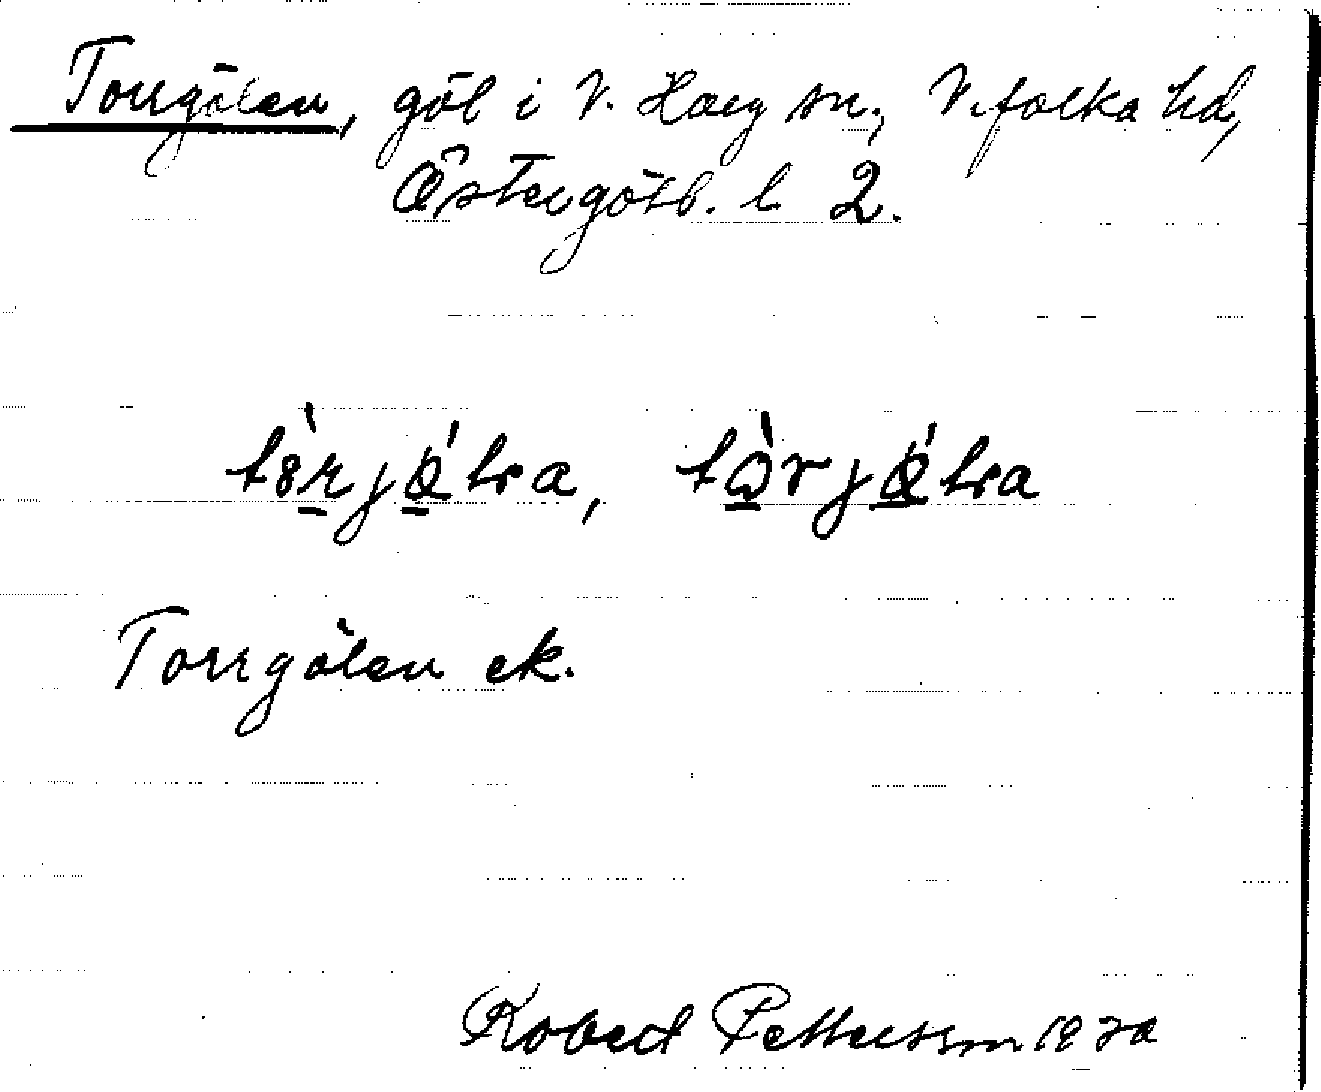 Torrgölen, göl i V. Harg sn, Vifolka hd,
Östergötl. l 2.
Torrgölen ek.
Robert Pettersson 19